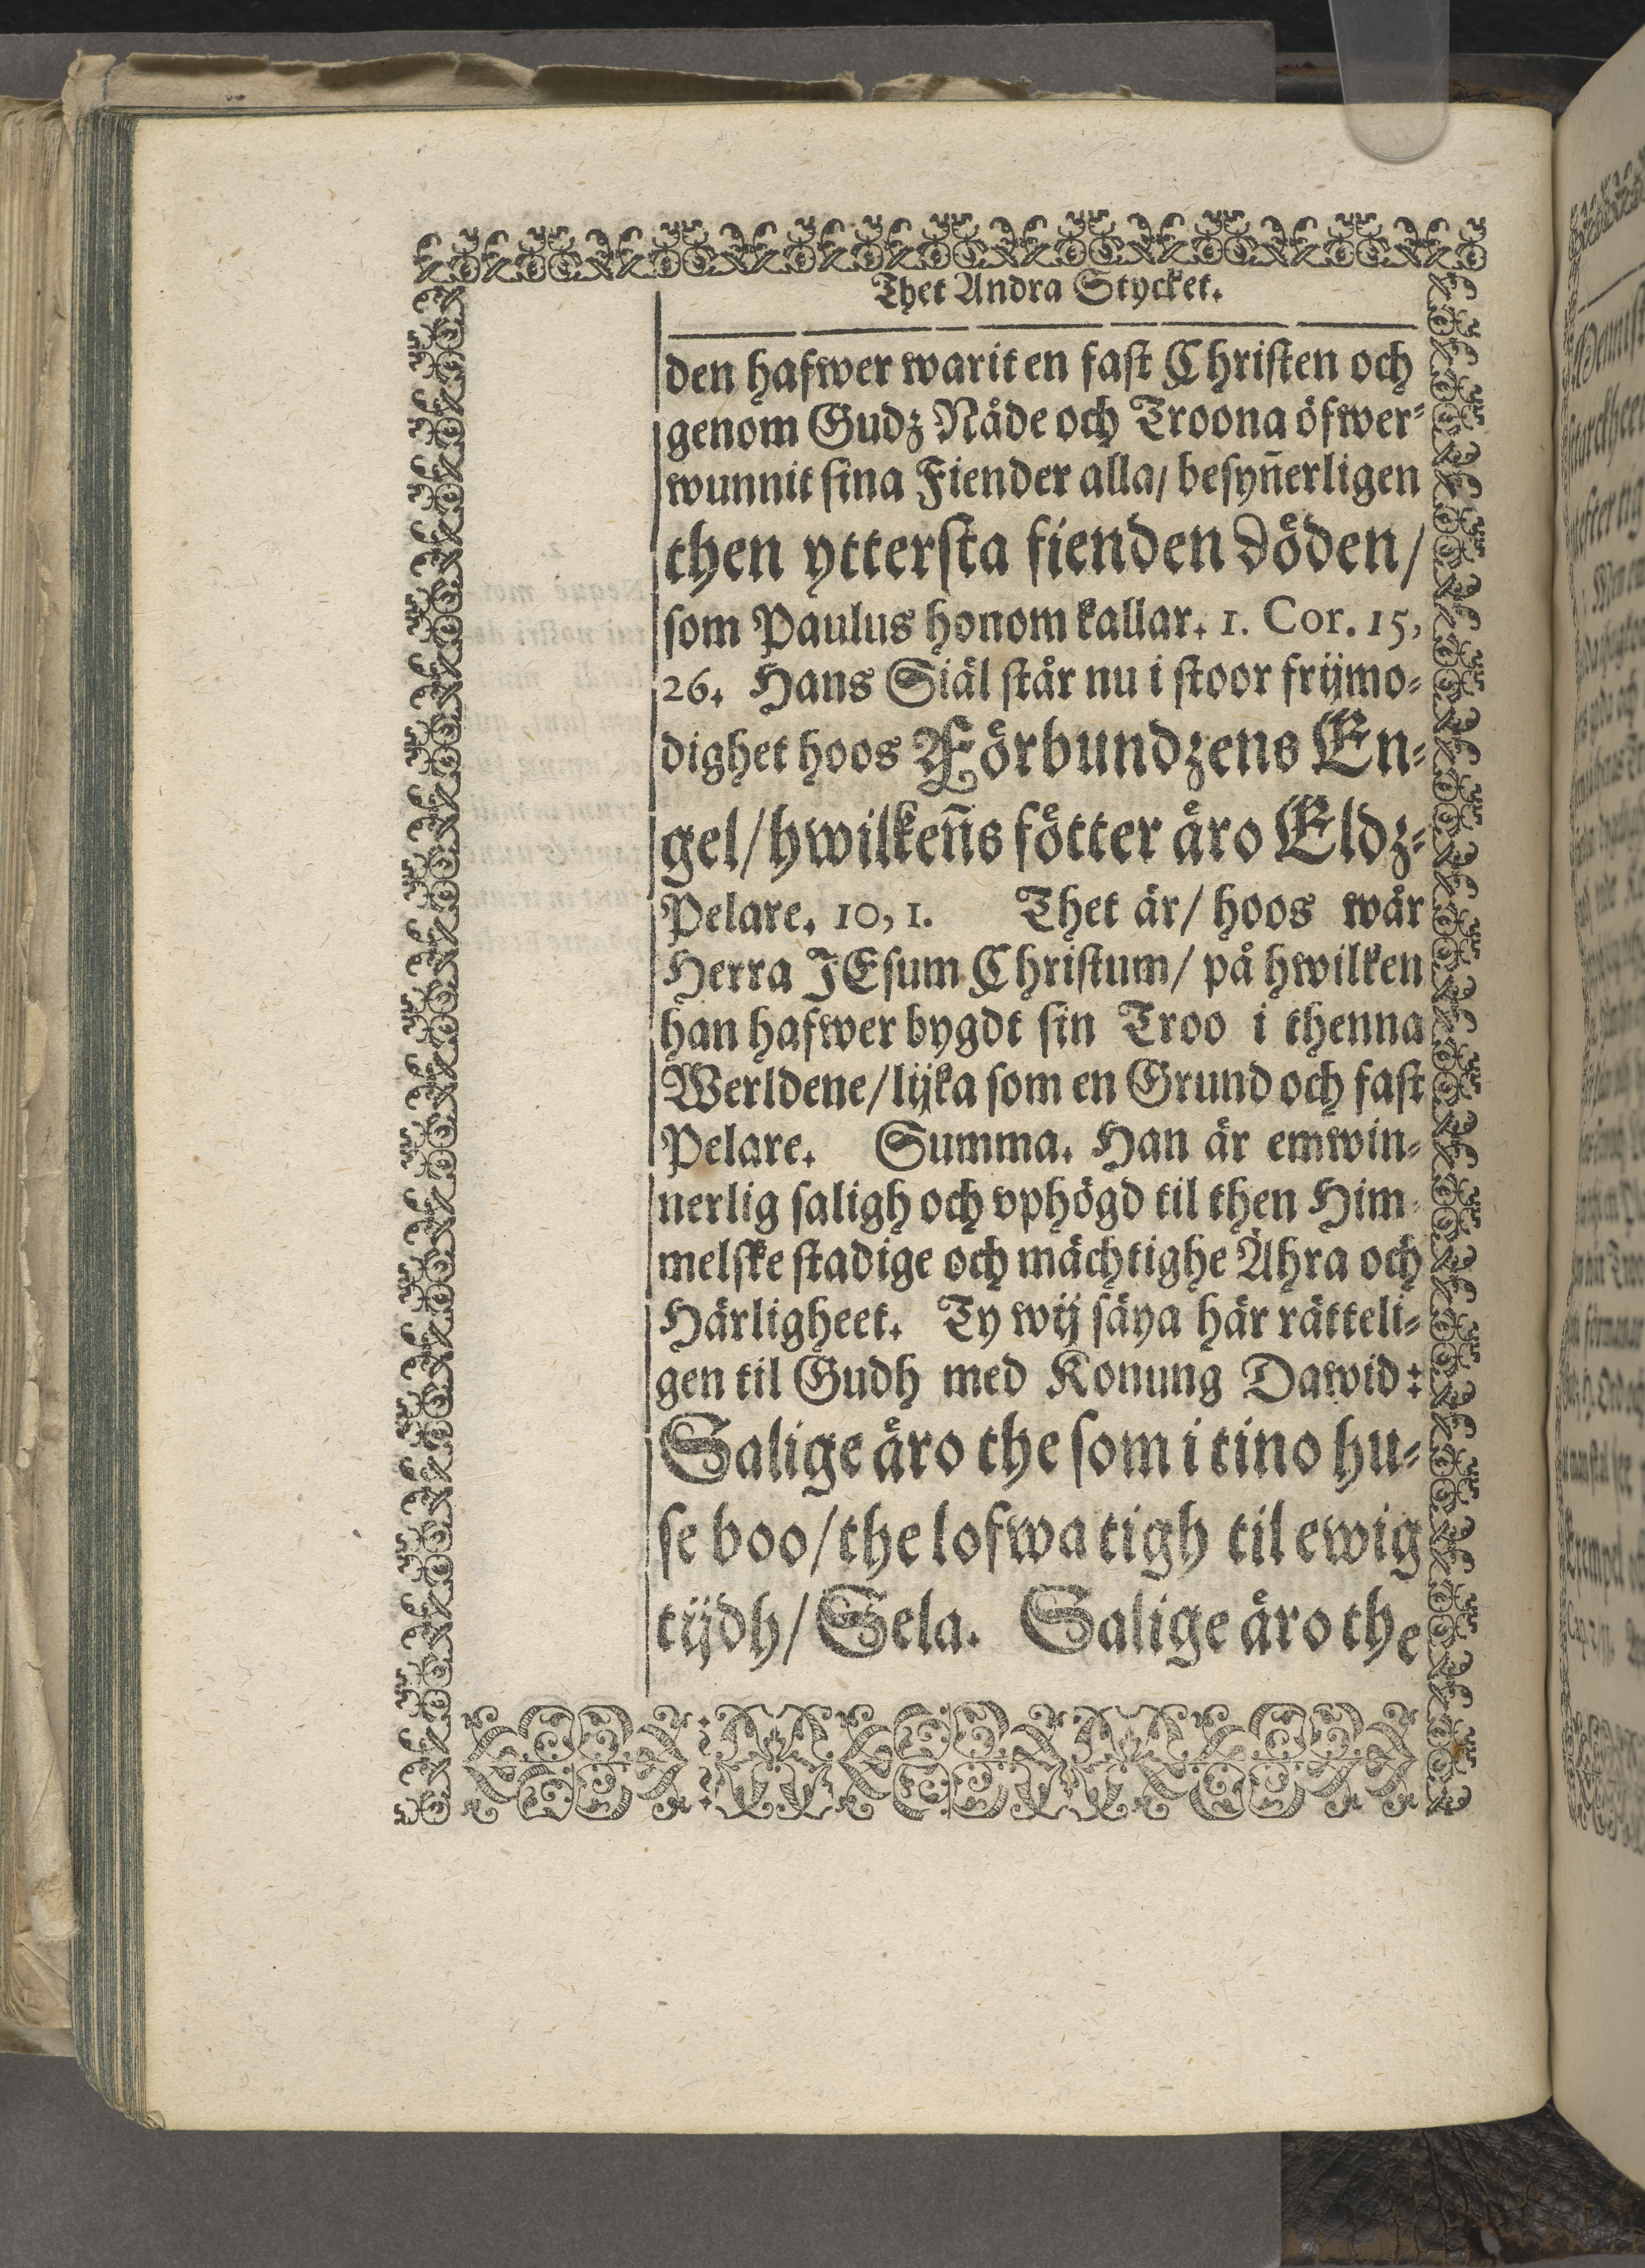 Thet Andra Stycket.
den hafwer warit en fast Christen och
genom Gudz Nåde och Troona öfwer-
wunnit sina Fiender alla/ besyn̄erligen
then yttersta fienden döden/
som Paulus honom kallar. 1. Cor. 15,
26. Hans Siäl står nu i stoor frijmo-
dighet hoos Förbundzens En-
gel/ hwilken̄s fötter äro Eldz-
Pelare. 10, 1. Thet är/ hoos wår
Herra JEsum Christum/ på hwilken
han hafwer bygdt sin Troo i thenna
Werldene/ lijka som en Grund och fast
Pelare. Summa. Han är emwin-
nerlig saligh och vphögd til then Him-
melske stadige och mächtighe Ähra och
Härligheet. Ty wij säya här rätteli-
gen til Gudh med Konung Dawid:
Salige äro the som i tino hu-
se boo/ the lofwa tigh til ewig
tijdh/ Sela. Salige äro the